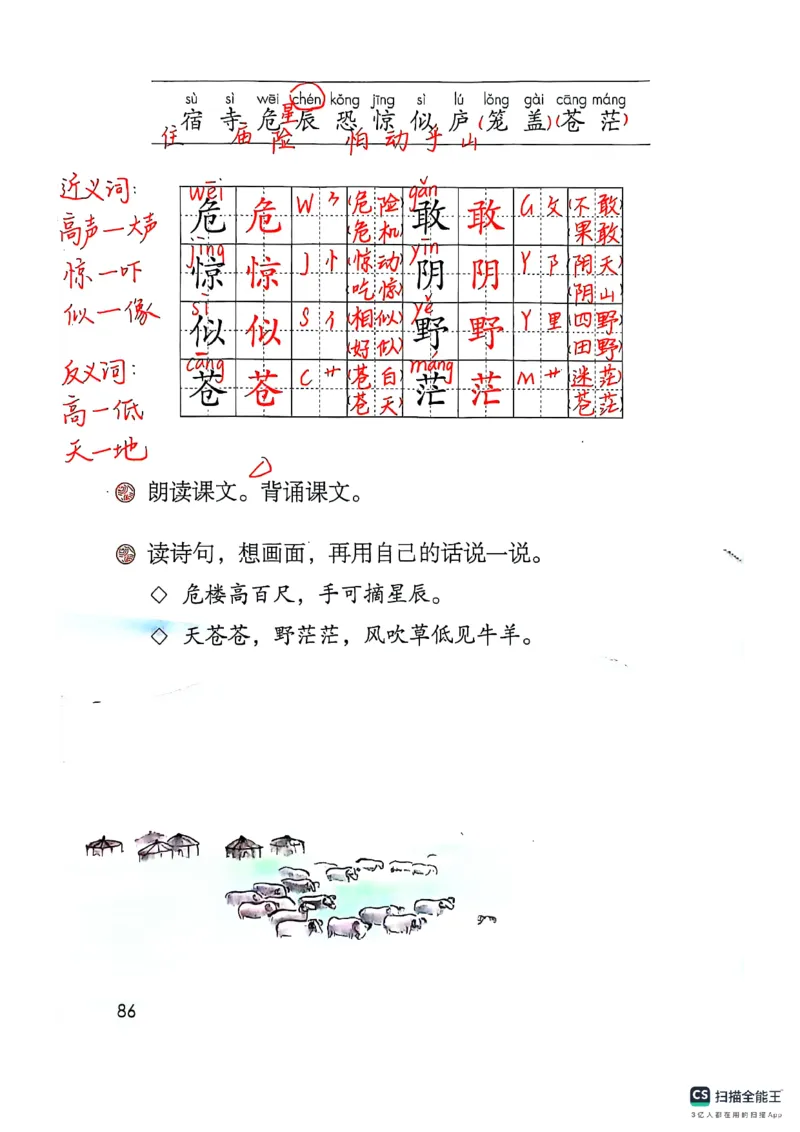 sù sì wēi chén kǒng jīng sì lú lǒng gài cāng máng
宿 寺 危 星辰 恐 惊 似 庐 (笼 盖)(苍 茫)
住 庙 险 怕 动 乎 山
近义词:
高声一大声
惊一吓
似一像
反义词:
高一低
天一地
wēi gǎn
危 危 W ⺈ (危险) 敢 敢 G 攵 (不敢)
(危机) (果敢)
jīng yīn
惊 惊 J 忄 (惊动) 阴 阴 Y 阝 (阴天)
(吃惊) (阴山)
sì yě
似 似 S 亻 (相似) 野 野 Y 里 (四野)
(好似) (田野)
cāng máng
苍 苍 C 艹 (苍白) 茫 茫 M 艹 (迷茫)
(苍天) (苍茫)
朗读课文。背诵课文。
读诗句，想画面，再用自己的话说一说。
◇ 危楼高百尺，手可摘星辰。
◇ 天苍苍，野茫茫，风吹草低见牛羊。
86
CS 扫描全能王
3亿人都在用的扫描App